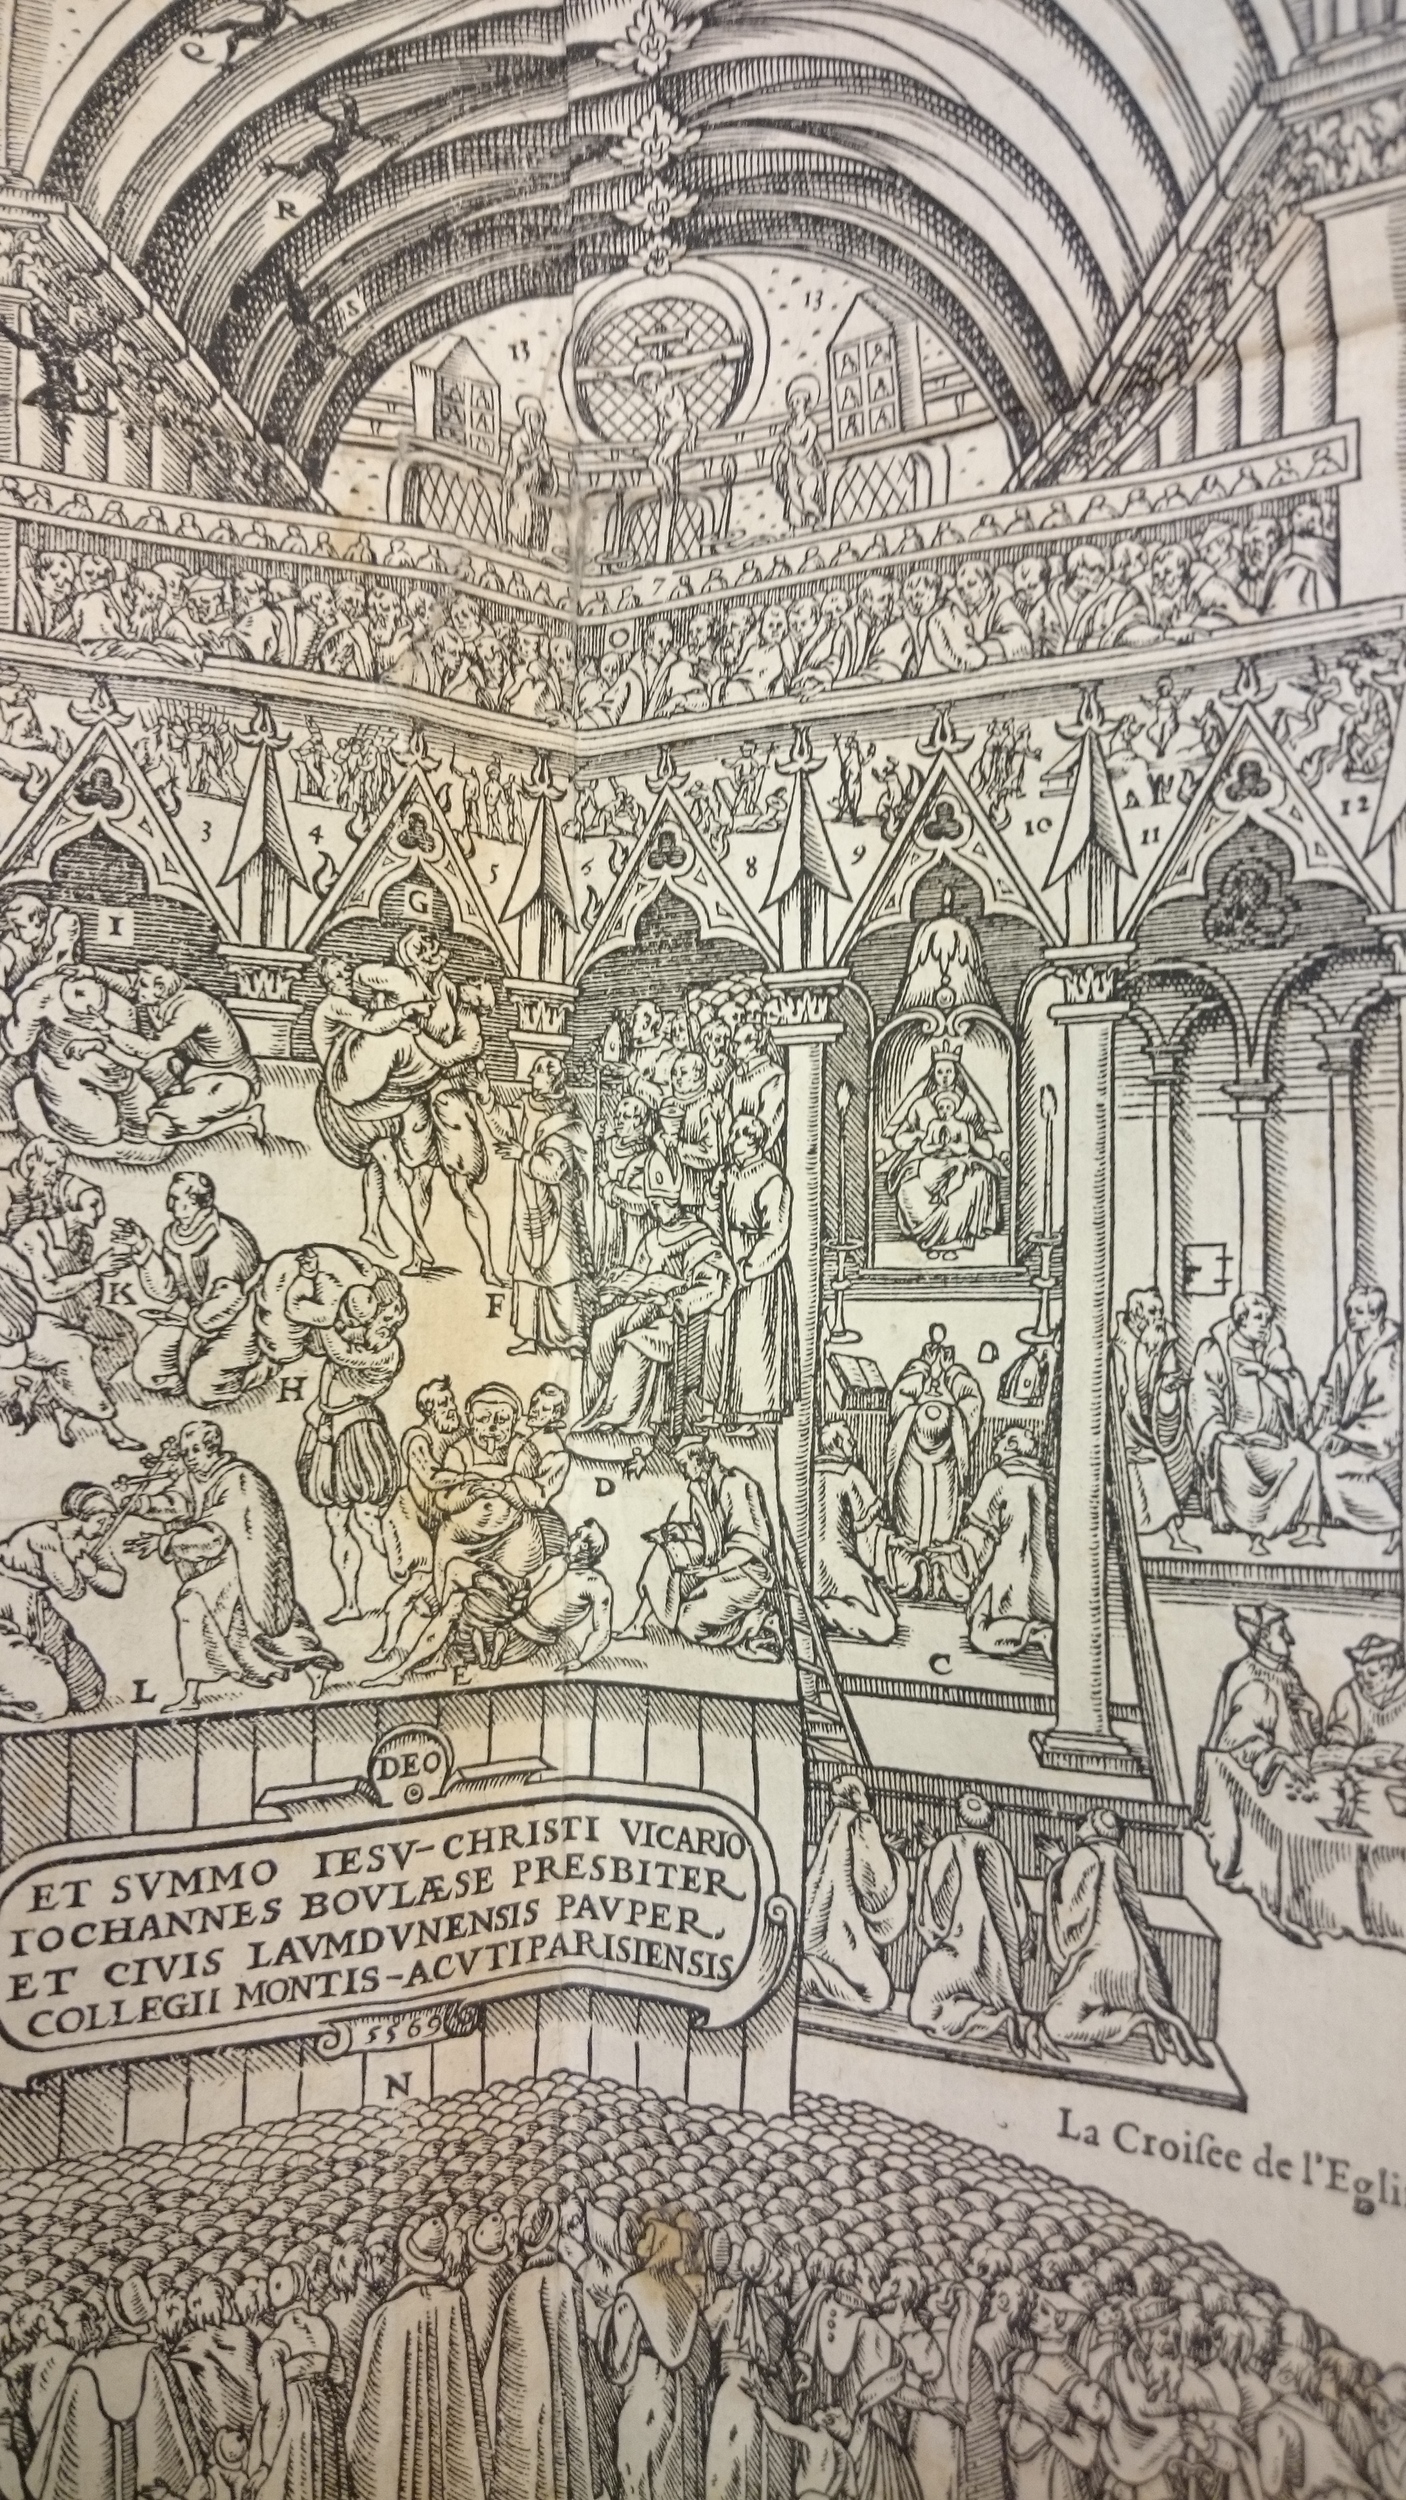 Q
R
S
13
13
7
O
3
4
5
6
8
9
10
11
12
I
G
K
F
H
D
L
E
C
DEO
ET SVMMO IESV-CHRISTI VICARIO
IOCHANNES BOVLÆSE PRESBITER
ET CIVIS LAVMDVNENSIS PAVPER,
COLLEGII MONTIS-ACVTI PARISIENSIS
5569
N
La Croiſee de l'Egli